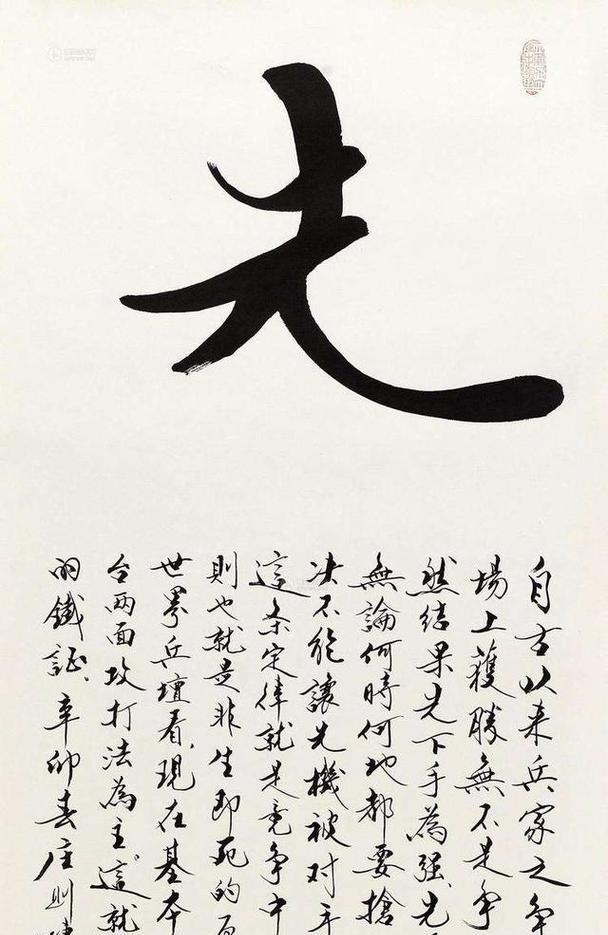 先
自古以来兵家之争
场上獲勝無不是争
然结果先下手為强、先
無論何時何地都要搶
决不能讓先機被对手
這条定律就是竞争中
則也就是非生即死的
世界乒壇看、現在基本
台两面攻打法為主、這就
的鐵証、辛卯春庄则